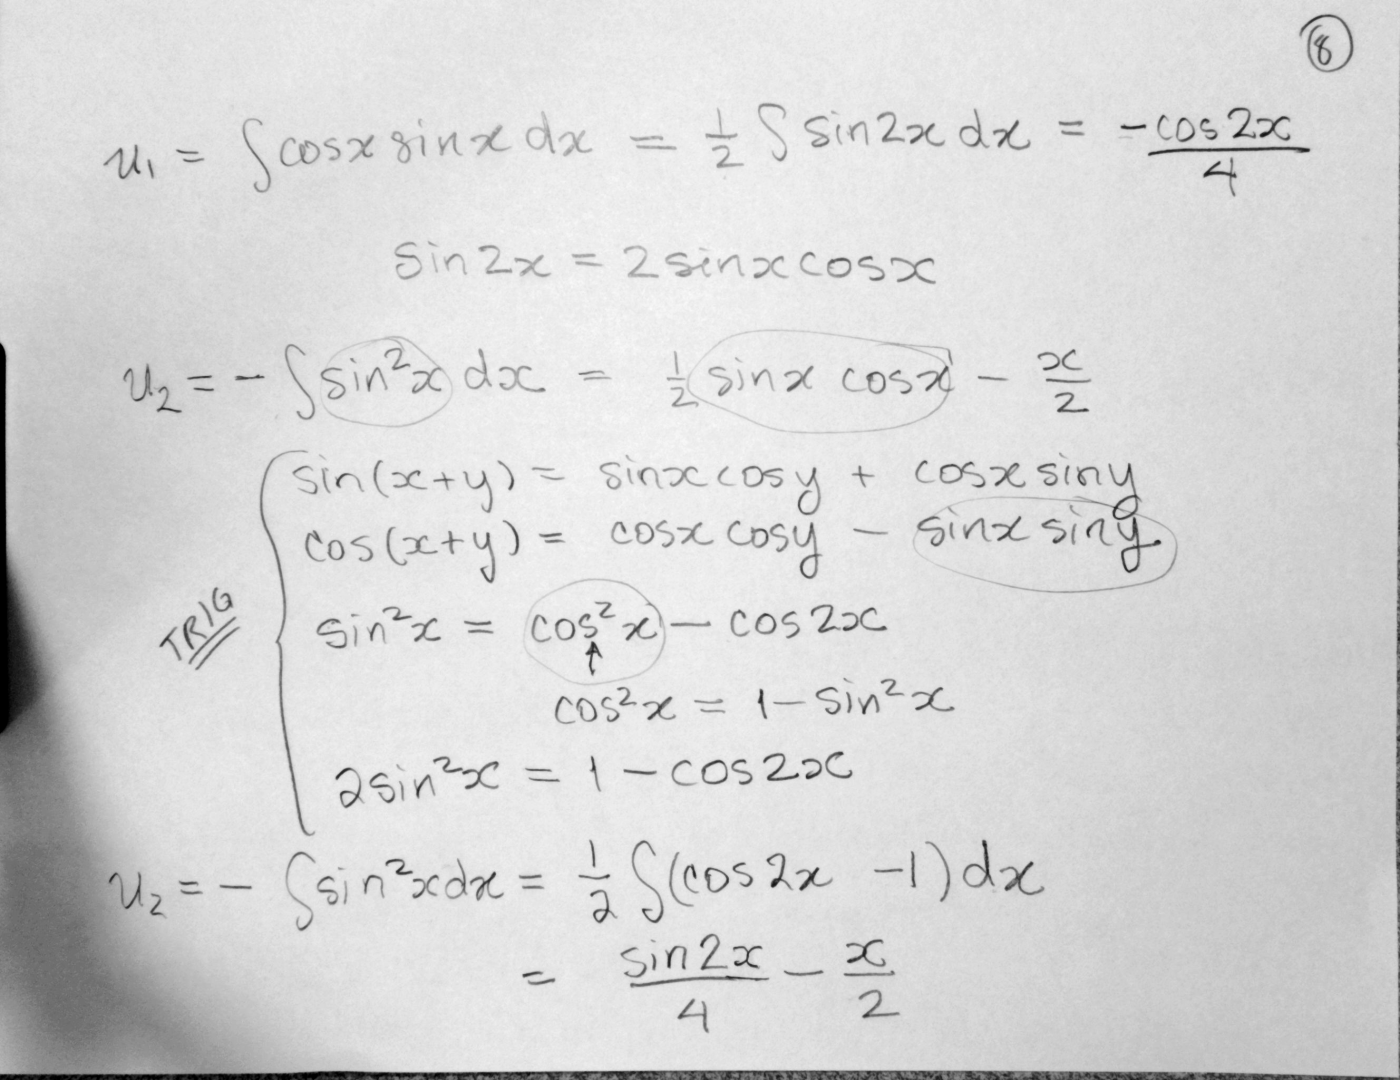 ⑧
u₁ = ∫cosx sinx dx = ½ ∫ sin2x dx = -cos2x/4
sin2x = 2sinxcosx
u₂ = - ∫sin²x dx = ½ sinx cosx - x/2
sin(x+y) = sinx cosy + cosx siny
cos(x+y) = cosx cosy - sinx siny
TRIG
sin²x = cos²x - cos2x
↑
cos²x = 1 - sin²x
2sin²x = 1 - cos2x
u₂ = - ∫sin²xdx = ½ ∫(cos2x - 1)dx
= sin2x/4 - x/2